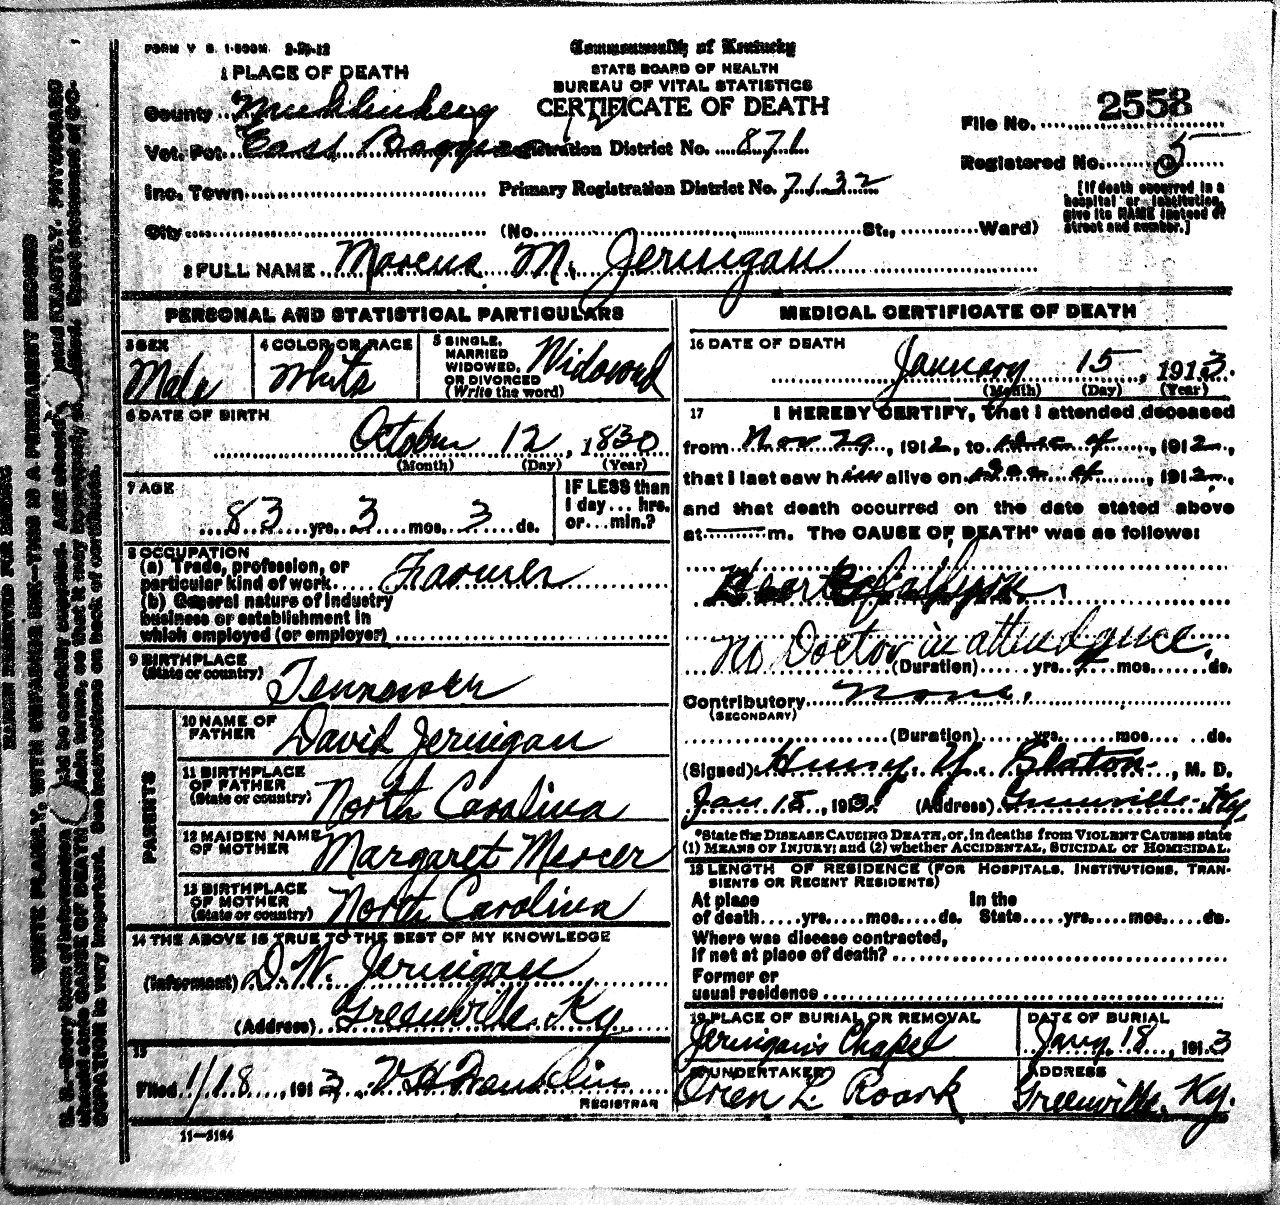 FORM V. S. 1-500M. 2-29-12
Commonwealth of Kentucky
STATE BOARD OF HEALTH
BUREAU OF VITAL STATISTICS
CERTIFICATE OF DEATH
1 PLACE OF DEATH
County Muhlenberg
Vot. Pct. East istration District No. 871
Inc. Town Primary Registration District No. 7132
City (No. St., Ward)
File No. 2553
Registered No. 5
[If death occurred in a hospital or institution, give its NAME instead of street and number.]
2 FULL NAME Marcus M. Jernigan
PERSONAL AND STATISTICAL PARTICULARS
3 SEX Male
4 COLOR OR RACE White
5 SINGLE, MARRIED WIDOWED, OR DIVORCED (Write the word) Widowed
6 DATE OF BIRTH October 12, 1830
(Month) (Day) (Year)
7 AGE 83 yrs. 3 mos. 3 ds.
IF LESS than 1 day... hrs. or... min.?
8 OCCUPATION
(a) Trade, profession, or particular kind of work Farmer
(b) General nature of industry business or establishment in which employed (or employer)
9 BIRTHPLACE (State or country) Tennessee
PARENTS
10 NAME OF FATHER David Jernigan
11 BIRTHPLACE OF FATHER (State or country) North Carolina
12 MAIDEN NAME OF MOTHER Margaret Mercer
13 BIRTHPLACE OF MOTHER (State or country) North Carolina
14 THE ABOVE IS TRUE TO THE BEST OF MY KNOWLEDGE
(Informant) D. W. Jernigan
(Address) Greenville Ky
15
Filed 1/18, 1913 V H Franklin
REGISTRAR
11—3184
MEDICAL CERTIFICATE OF DEATH
16 DATE OF DEATH
January 15, 1913.
(Month) (Day) (Year)
17 I HEREBY CERTIFY, that I attended deceased
from Nov. 29, 1912, to , 1912,
that I last saw him alive on , 1912,
and that death occurred on the date stated above
at m. The CAUSE OF DEATH* was as follows:
Heart
No Doctor in attendance.
(Duration) yrs. mos. ds.
Contributory none.
(SECONDARY)
(Duration) yrs. mos. ds.
(Signed) Henry Y. Slaton, M. D.
Jan 18, 1913. (Address) Greenville Ky.
*State the DISEASE CAUSING DEATH, or, in deaths from VIOLENT CAUSES state
(1) MEANS OF INJURY; and (2) whether ACCIDENTAL, SUICIDAL or HOMICIDAL.
18 LENGTH OF RESIDENCE (FOR HOSPITALS, INSTITUTIONS, TRAN-
SIENTS OR RECENT RESIDENTS)
At place of death yrs. mos. ds. In the State yrs. mos. ds.
Where was disease contracted,
If not at place of death?
Former or
usual residence
19 PLACE OF BURIAL OR REMOVAL DATE OF BURIAL
Jernigan's Chapel Jany. 18, 1913
20 UNDERTAKER ADDRESS
Oren L. Roark Greenville, Ky.
MARGIN RESERVED FOR BINDING
WRITE PLAINLY, WITH UNFADING INK—THIS IS A PERMANENT RECORD